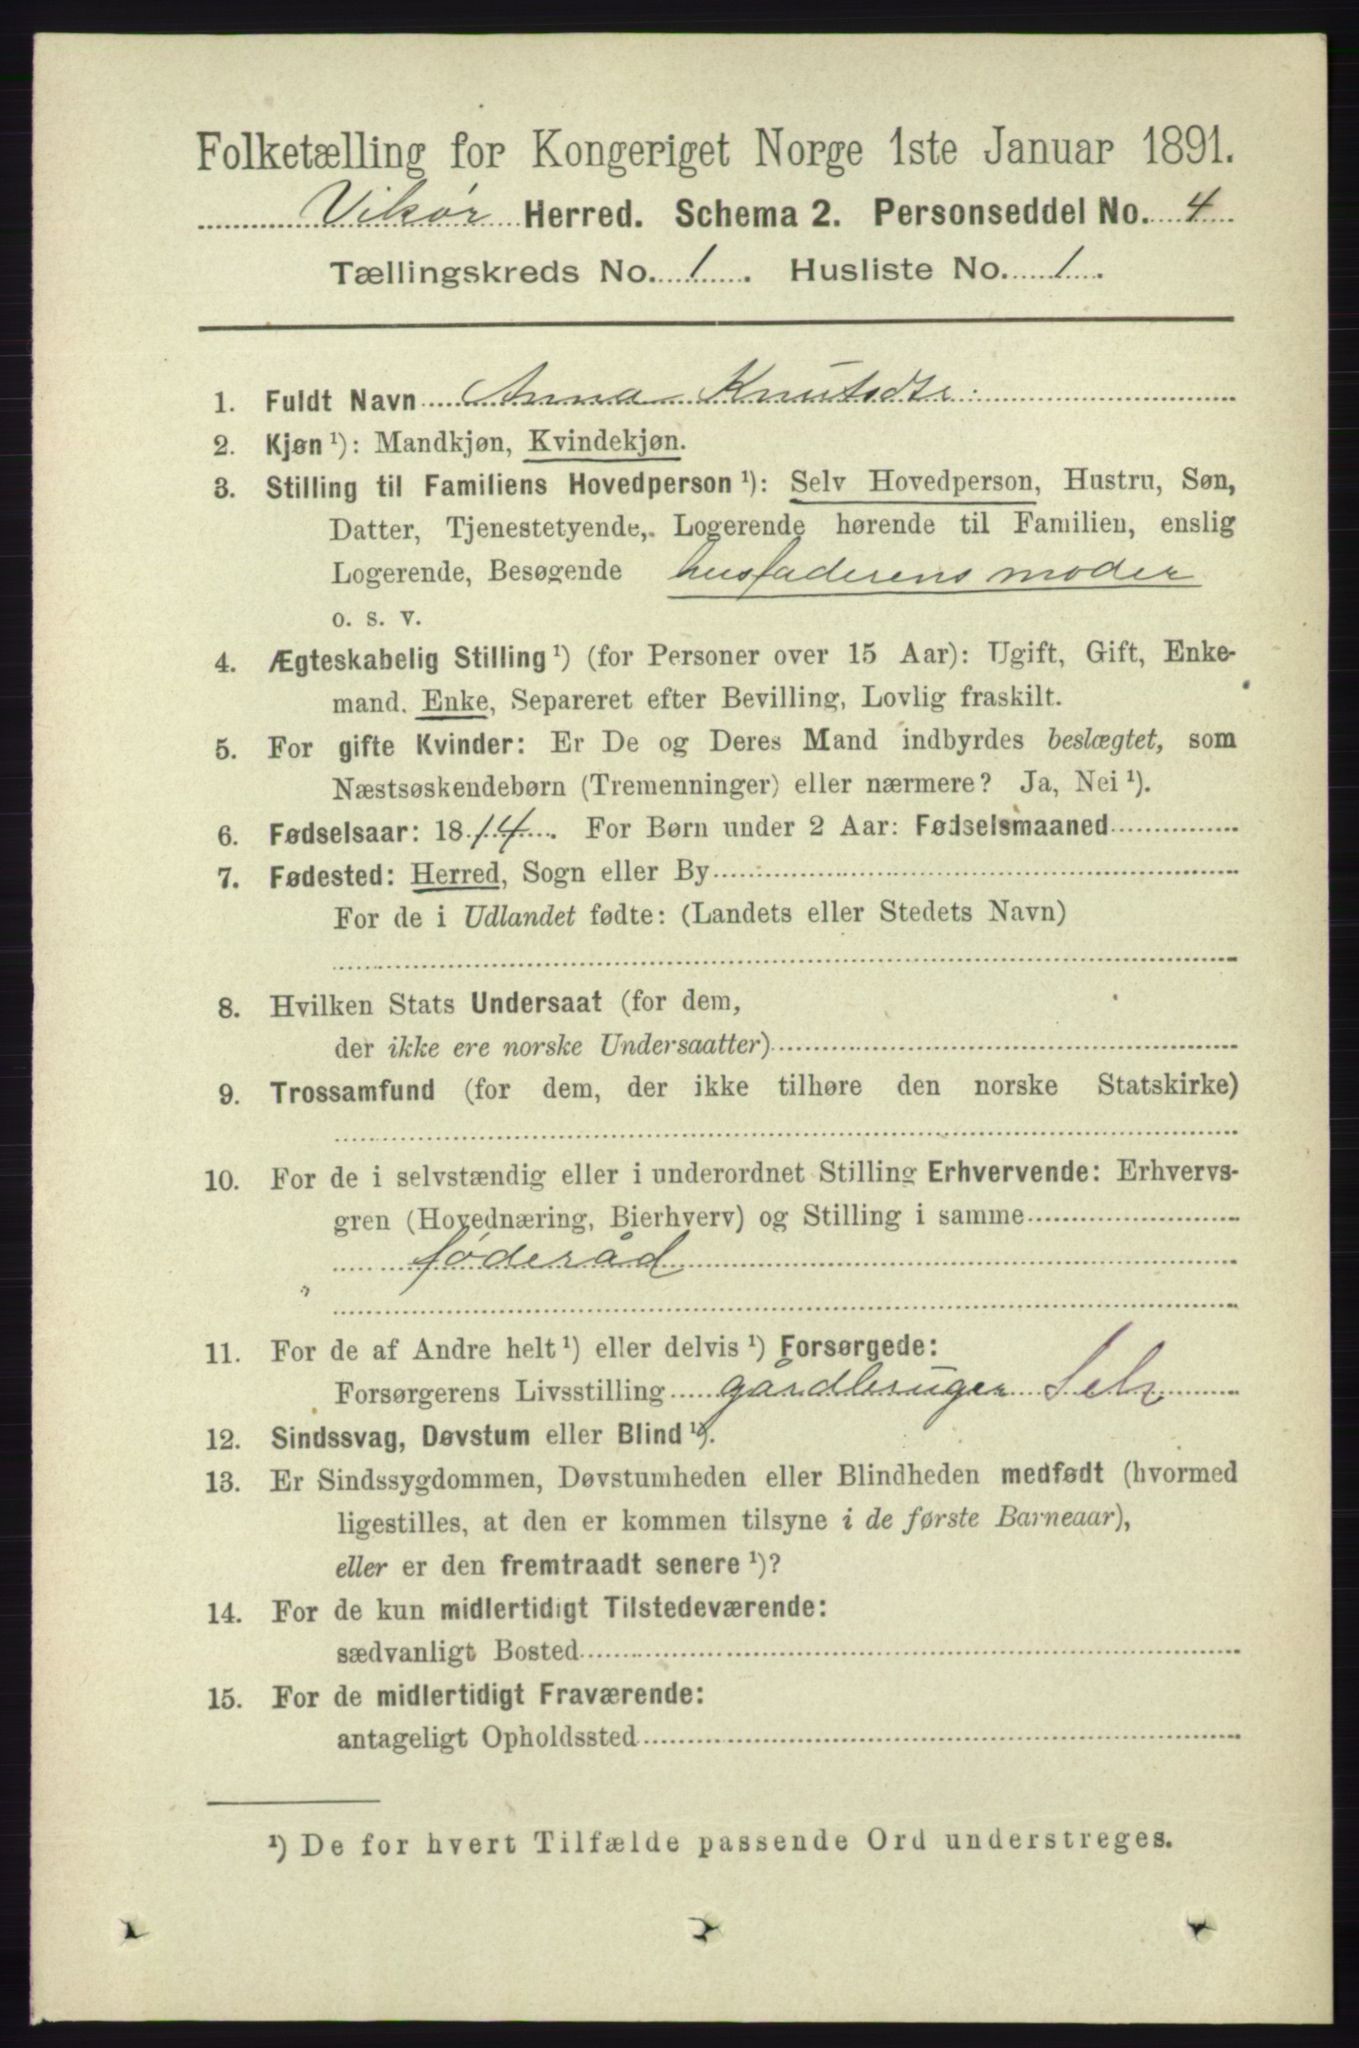 Folketælling for Kongeriget Norge 1ste Januar 1891.
Vikør Herred. Schema 2. Personseddel No. 4
Tællingskreds No. 1. Husliste No. 1.
1. Fuldt Navn Anna Knutsdtr.
2. Kjøn ¹): Mandkjøn, Kvindekjøn.
3. Stilling til Familiens Hovedperson ¹): Selv Hovedperson, Hustru, Søn,
Datter, Tjenestetyende, Logerende hørende til Familien, enslig
Logerende, Besøgende husfaderens moder
o. s. v.
4. Ægteskabelig Stilling ¹) (for Personer over 15 Aar): Ugift, Gift, Enke-
mand. Enke, Separeret efter Bevilling, Lovlig fraskilt.
5. For gifte Kvinder: Er De og Deres Mand indbyrdes beslægtet, som
Næstsøskendebørn (Tremenninger) eller nærmere? Ja, Nei ¹).
6. Fødselsaar: 1814. For Børn under 2 Aar: Fødselsmaaned
7. Fødested: Herred, Sogn eller By
For de i Udlandet fødte: (Landets eller Stedets Navn)
8. Hvilken Stats Undersaat (for dem,
der ikke ere norske Undersaatter)
9. Trossamfund (for dem, der ikke tilhøre den norske Statskirke)
10. For de i selvstændig eller i underordnet Stilling Erhvervende: Erhvervs-
gren (Hovednæring, Bierhverv) og Stilling i samme
føderåd
11. For de af Andre helt ¹) eller delvis ¹) Forsørgede:
Forsørgerens Livsstilling gårdbruger Selv
12. Sindssvag, Døvstum eller Blind ¹).
13. Er Sindssygdommen, Døvstumheden eller Blindheden medfødt (hvormed
ligestilles, at den er kommen tilsyne i de første Barneaar),
eller er den fremtraadt senere ¹)?
14. For de kun midlertidigt Tilstedeværende:
sædvanligt Bosted
15. For de midlertidigt Fraværende:
antageligt Opholdssted
¹) De for hvert Tilfælde passende Ord understreges.